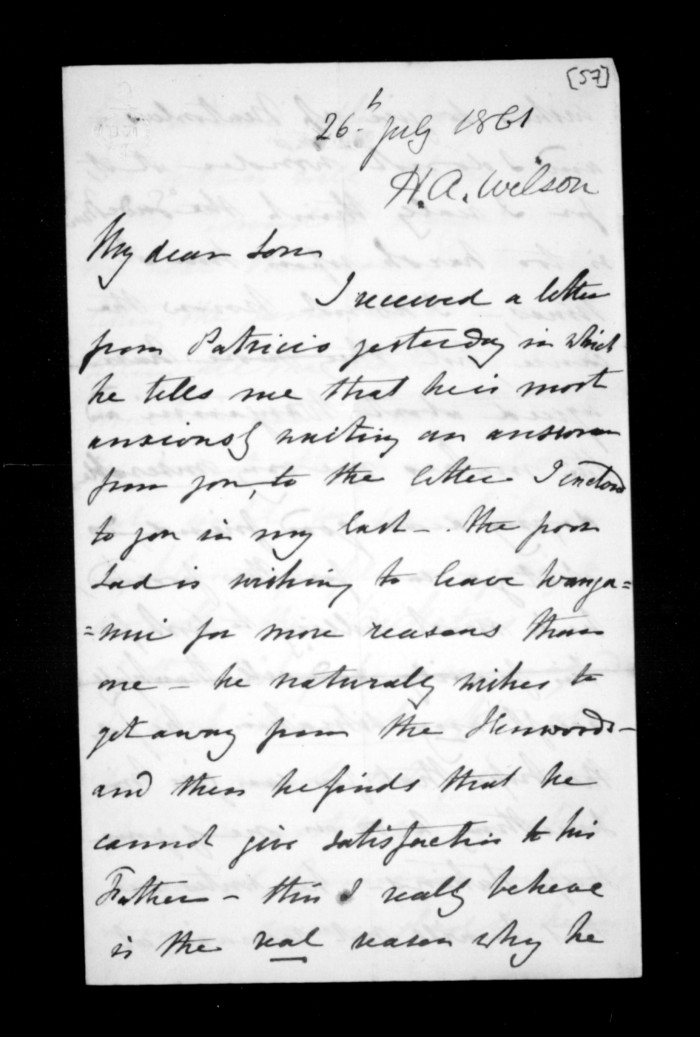 [57]
26th July 1861
H. A. Wilson
My dear Sir
I received a letter
from Patricio yesterday in which
he tells me that he is most
anxiously waiting an answer
from you, to the letter I enclosed
to you in my last -. The poor
Lad is wishing to leave Wanga=
=nui for more reasons than
one - he naturally wishes to
get away from the Henwoods -
and then he finds that he
cannot give satisfaction to his
Father - this I really believe
is the real reason why he